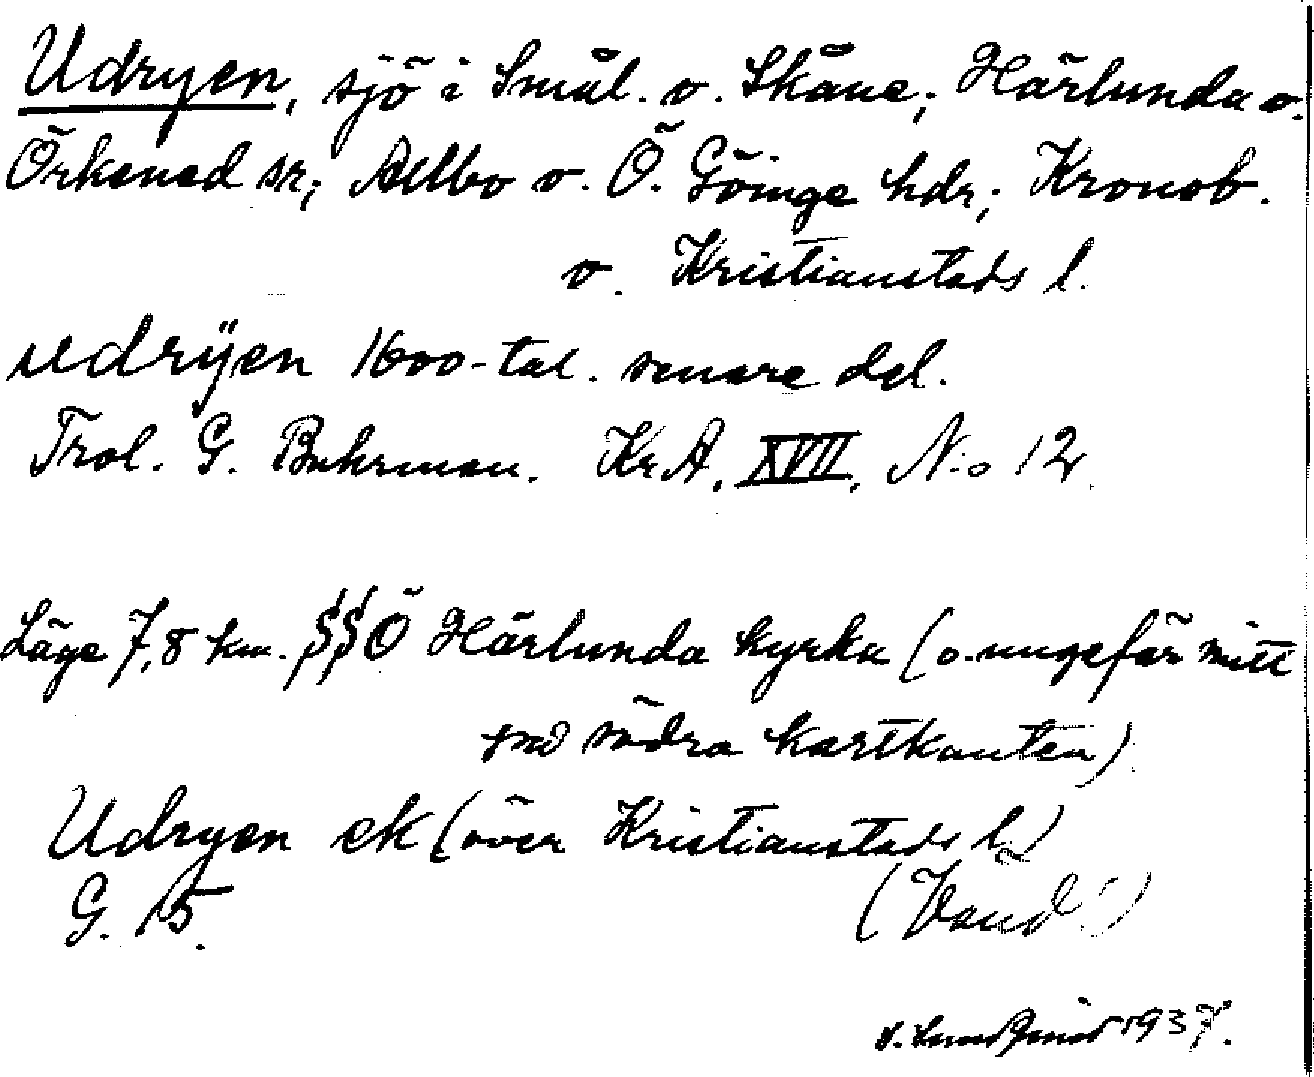 Udryen, sjö i Smål. o. Skåne; Härlunda o.
Örkened sr; Allbo o. Ö. Göinge hdr; Kronob.
o. Kristianstads l.
udrÿen 1600-tal. senare del.
Trol. G. Buhrman. Kr.A. XVII. N:o 12.
Läge 7,8 km. SSÖ Härlunda kyrka (o. ungefär mitt
på södra kartkanten)
Udryen ek (över Kristianstads l.)
G. 15.
(Vänd!)
1937.